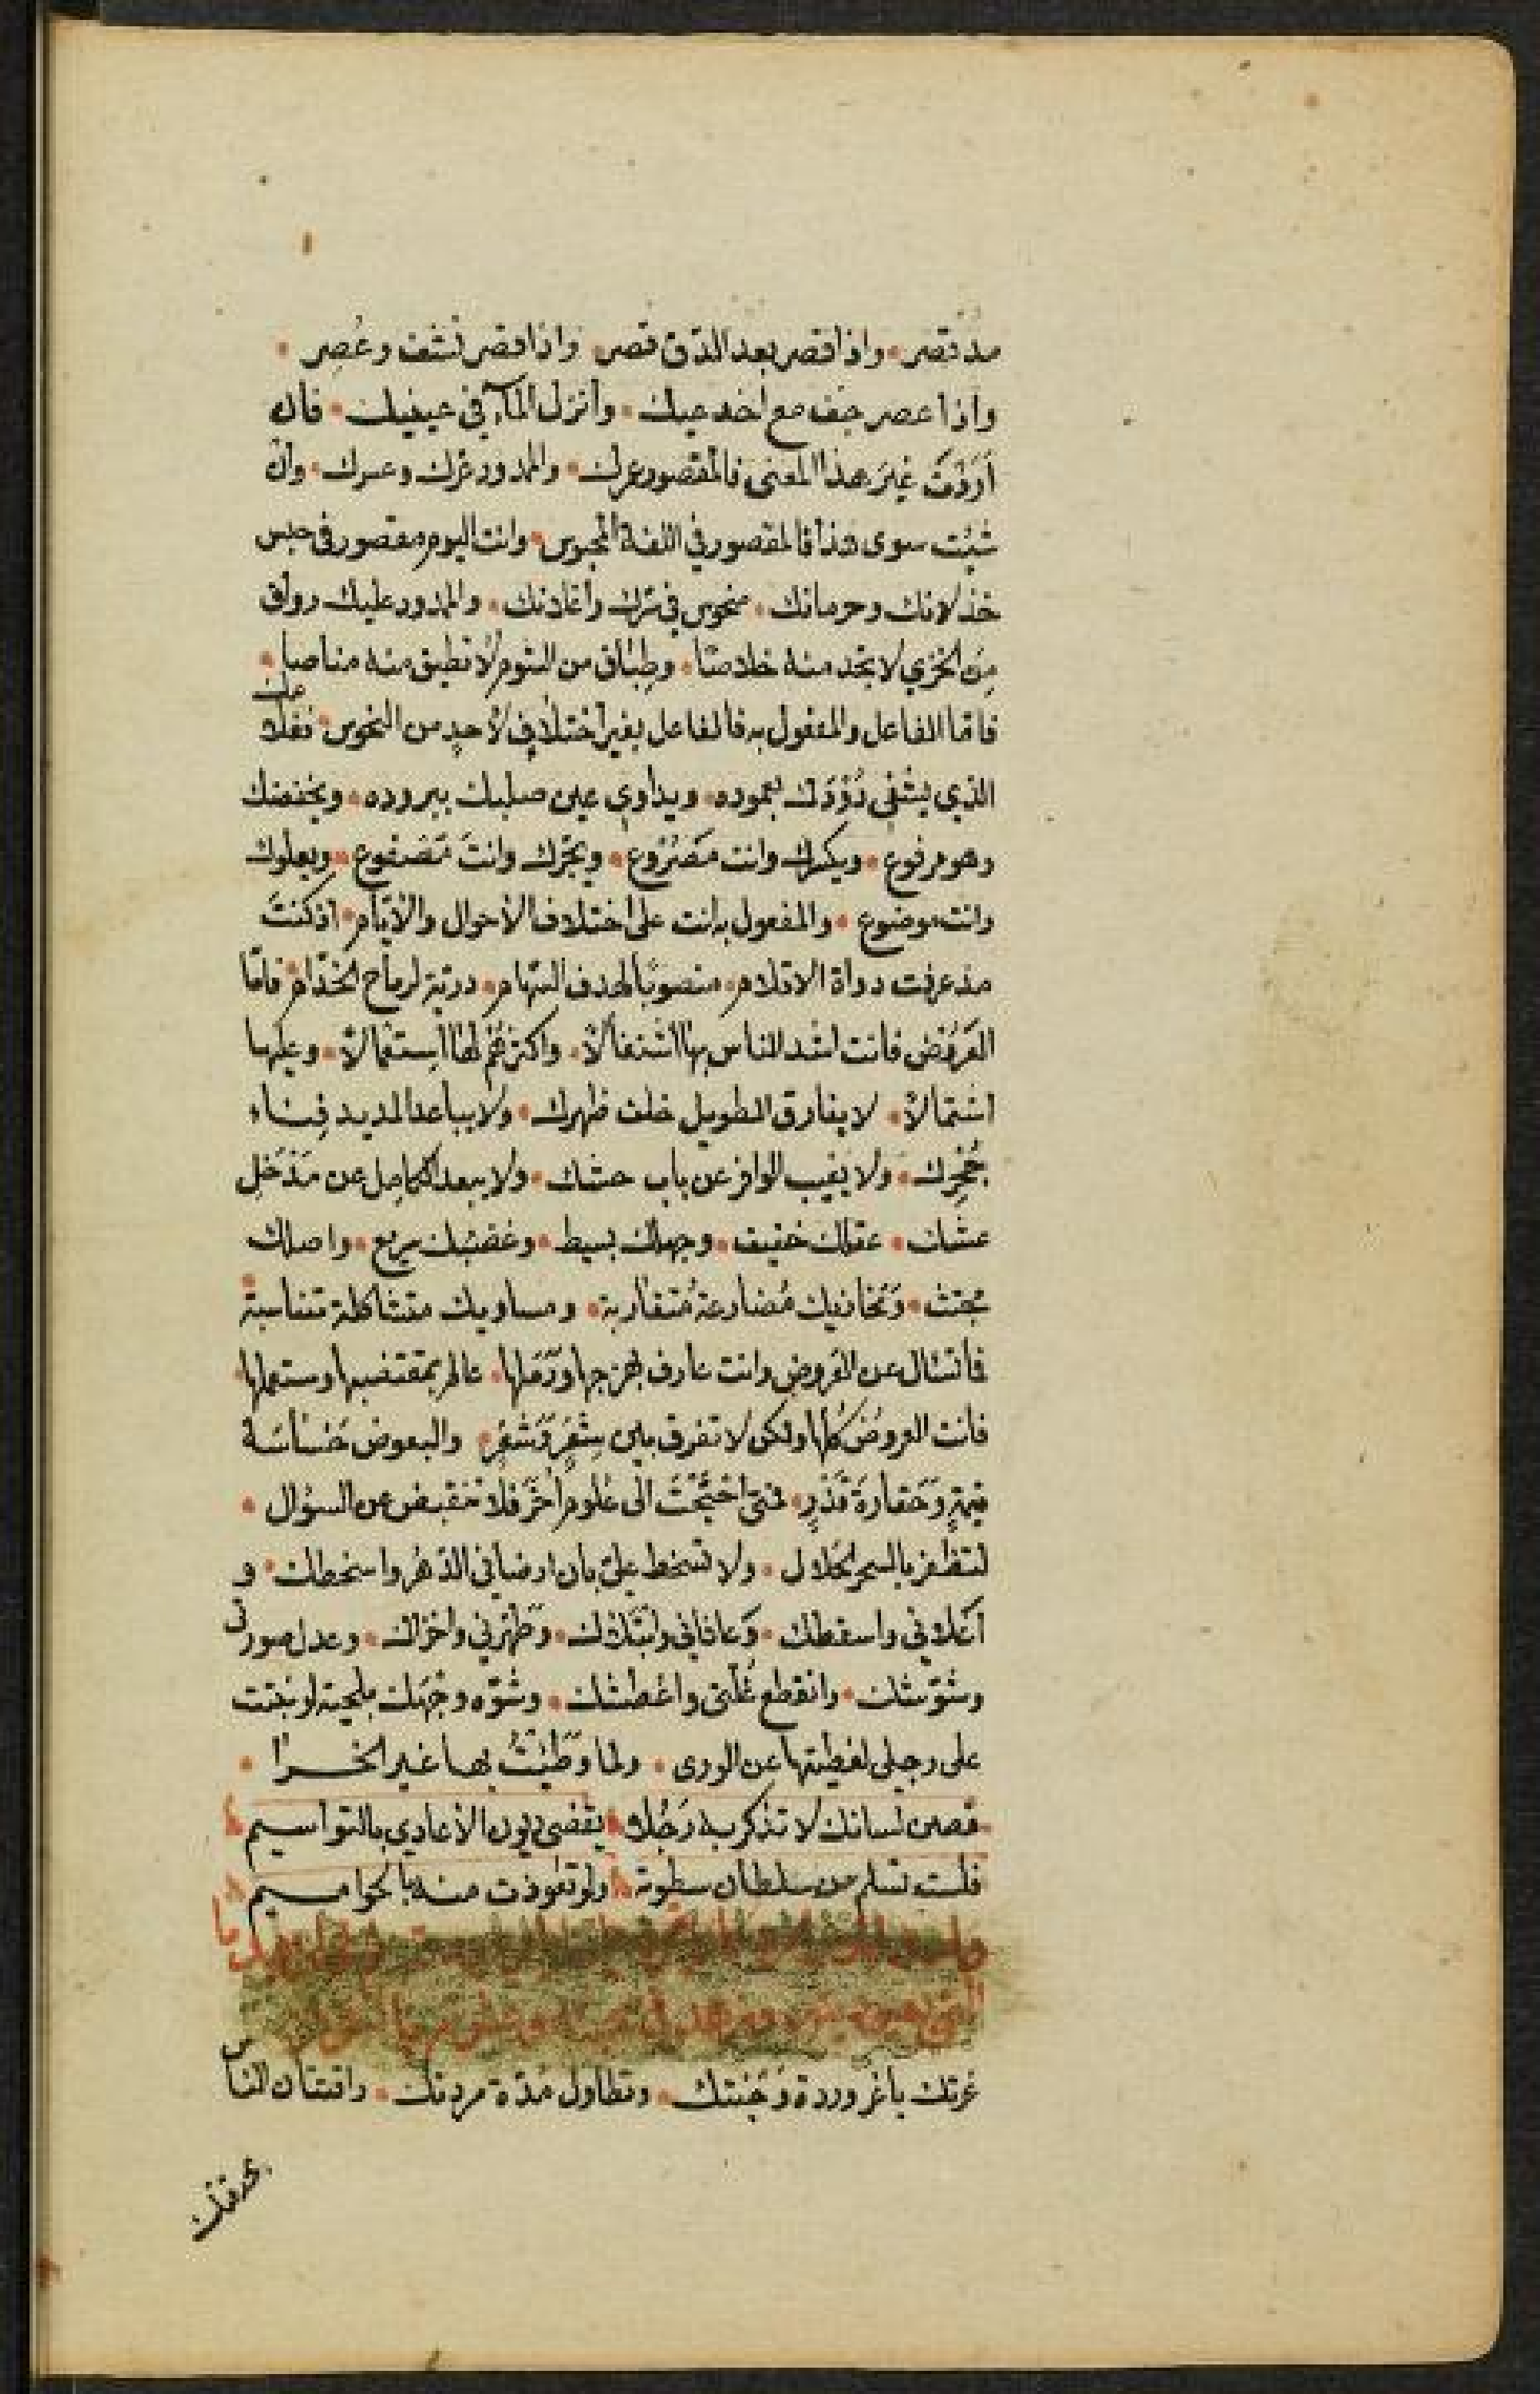 مد قصر • واذا قصر بعد الدق قصر • واذا قصر نشف وعُصِر •
واذا عصر جف مع اخدعيك • وانزل المآء في عينيك • فان
اَرَدْتَ غيَر هذا المعنى فالمقصور عمرك • والممدور عرك وعسرك • وان
شئت سوى هذا فالمقصور في اللغة المحبوس • وانت اليوم مقصور في حبس
خذلانك وحرمانك • منحوس في ترك واغادنك • والممدود عليك رواق
مِن الخزي لا تجد منه خلاصًا • وطباق من الشوم لا تطيق منه مناصا •
فامّا الفاعل والمفعول به فالفاعل بغير اختلاف لأحدٍ من النحوس • فعلك
الذي يشفى بعموده • ويداوي عين صلبك ببروده • ويخفضك
وهو مرفوع • ويكدك وانت مَصْرُوع • ويجرّك وانتَ مَصفوع • ويعلوك
وانت موضوع • والمفعول به انت على اختلاف الاحوال والأيام • اذ كنتَ
مذ عرفت دواة الاقلام • منصوبًا لهدف السّهام • دريّة لرماح الخدّام • فامّا
العَرُوض فانت اشد الناس بها اشتغالاً • واكثرهُم لها استعمالاً • وعليها
اشتمالاً • لا يفارق الطويل خلف ظهرك • ولا يباعد المديد فِناء
جُحْرِك • ولا يغيب الوافر عن باب حشك • ولا يبعد الكامِل عن مَدْخل
عشك • عقلك خفيف • وجهلك بسيط • وغضبك سريع • واصلك
مجتث • وَمَخازيك مُضارعة مُتقاربة • ومساويك متشاكلة متناسبة •
فاتسال عن العَروض وانت عارف بهزجها وَرَمَلها • عالم بمقتضبها ومستعملها •
فانت العروض كلها ولكن لا تفرق بين شِعْرٍ وَشَعْرٍ • والبعوض خَساسَة
قيمةٍ وَحَقارة قَدْرٍ • فمتى احتَجْتَ الى عُلوم اُخَر فلا تنقبض عن السؤال •
لتظفر بالسحر الحلال • ولا تسخط عليّ بان ارضاني الدهر واسخطك • و
اَعْلاني واسقطك • وَعافاني وابتلاك • وَطهّرني واخزاك • وعدل صورتى
وشوّشك • وانقطع غُلّتى واعطشك • وشوّه وجهَك بلحية لو نبتت
على رجلى لغطيتها عن الورى • ولما وَطيْتُ بها غير الخرا •
فصن لسانك لا تذكر به رَجُلاً يقضى ديون الأعادي بالتواسيم
فلست تسلم من سلطان سطوته ولو تعوذت منه بالحواميم
غرتك ياغر وردة وَجْنتك • وتطاول مُدّة مردتك • وافتتان الناس